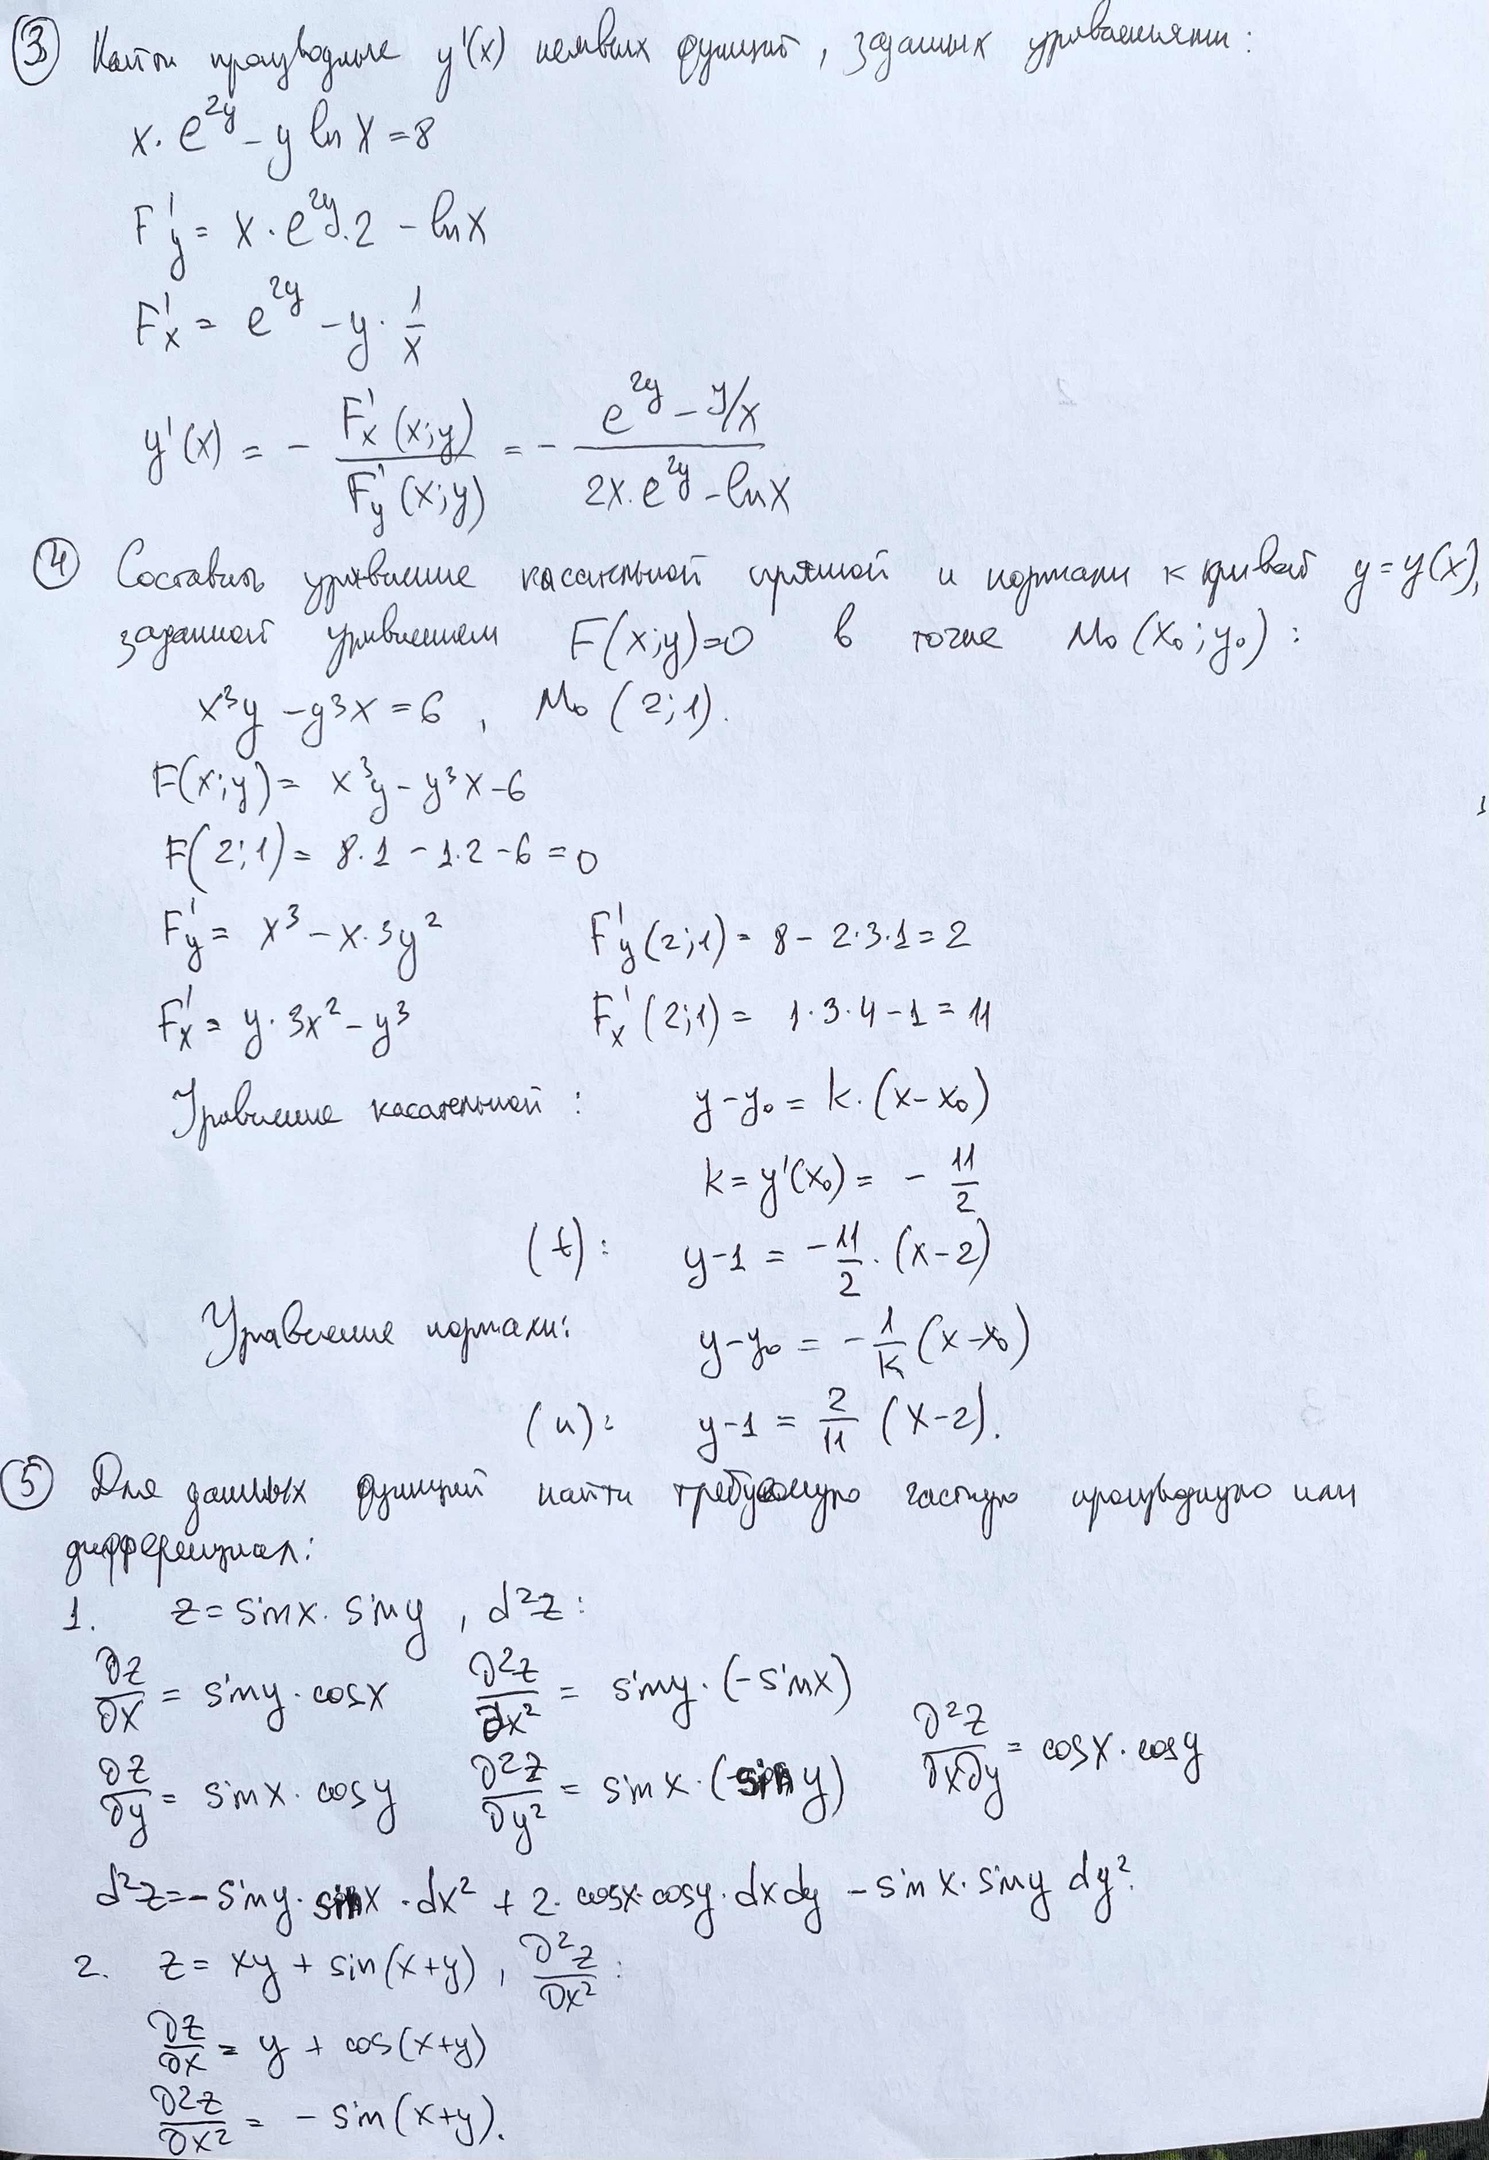 ③ Найти производные y'(x) неявных функций, заданных уравнениями:
x · e^{2y} - y ln x = 8
F'_y = x · e^{2y} · 2 - ln x
F'_x = e^{2y} - y · 1/x
y'(x) = - F'_x (x;y) / F'_y (x;y) = - (e^{2y} - y/x) / (2x · e^{2y} - ln x)
④ Составить уравнение касательной прямой и нормали к кривой y = y(x),
заданной уравнением F(x;y)=0 в точке M₀ (x₀; y₀):
x³y - y³x = 6, M₀ (2;1).
F(x;y) = x³y - y³x - 6
F(2;1) = 8·1 - 1·2 - 6 = 0
F'_y = x³ - x·3y² F'_y (2;1) = 8 - 2·3·1 = 2
F'_x = y · 3x² - y³ F'_x (2;1) = 1·3·4 - 1 = 11
Уравнение касательной: y - y₀ = k · (x - x₀)
k = y'(x₀) = - 11/2
(t): y - 1 = - 11/2 · (x - 2)
Уравнение нормали: y - y₀ = - 1/k (x - x₀)
(n): y - 1 = 2/11 (x - 2).
⑤ Для данных функций найти требуемую частную производную или
дифференциал:
1. z = sin x · sin y, d²z:
∂z/∂x = sin y · cos x ∂²z/∂x² = sin y · (-sin x)
∂z/∂y = sin x · cos y ∂²z/∂y² = sin x · (-sin y) ∂²z/∂x∂y = cos x · cos y
d²z = - sin y · sin x · dx² + 2 · cos x · cos y · dx dy - sin x · sin y dy².
2. z = xy + sin(x+y), ∂²z/∂x²:
∂z/∂x = y + cos(x+y)
∂²z/∂x² = - sin(x+y).